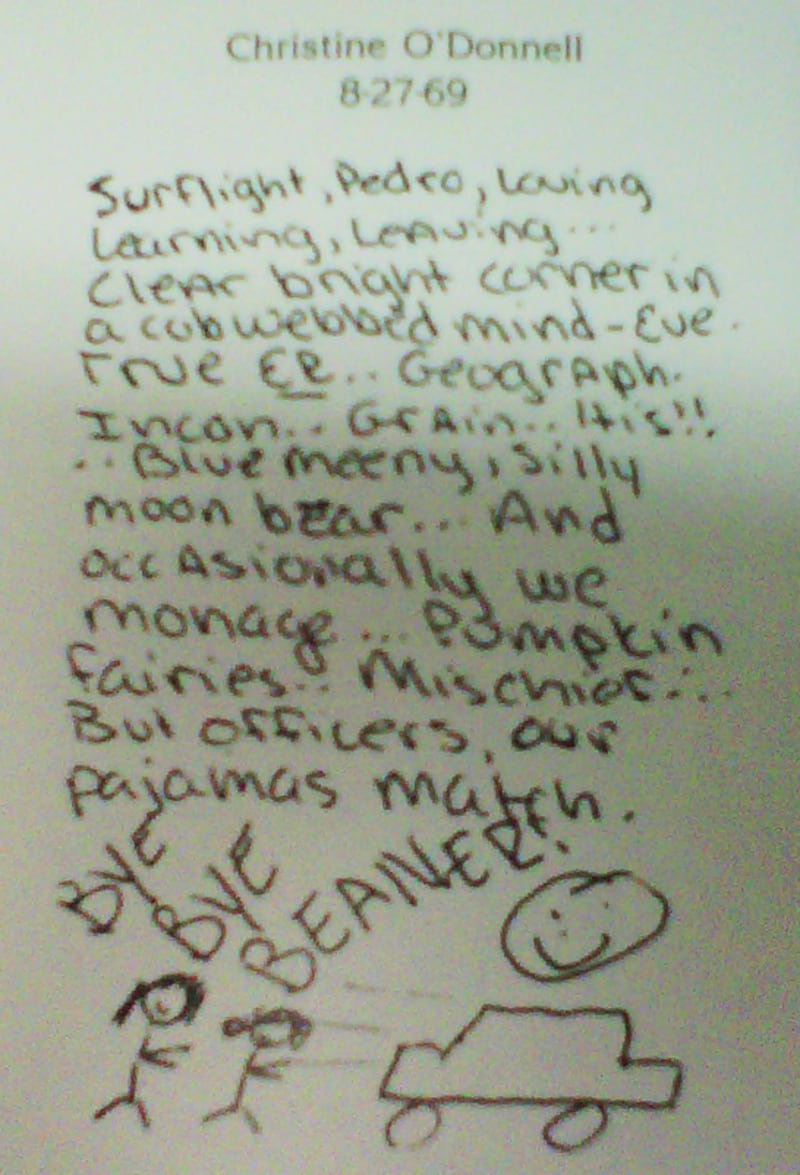 Christine O'Donnell
8-27-69
Surflight, Pedro, Loving
Learning, Leaving...
Clear bright corner in
a cobwebbed mind-Eve.
True ER.. Geograph.
Incon.. Grain.. It is!!
..Blue meeny, silly
moon bear... And
occasionally we
monage... Pumpkin
fairies.. Mischief...
But officers, our
pajamas match.
BYE
BYE
BEANER!